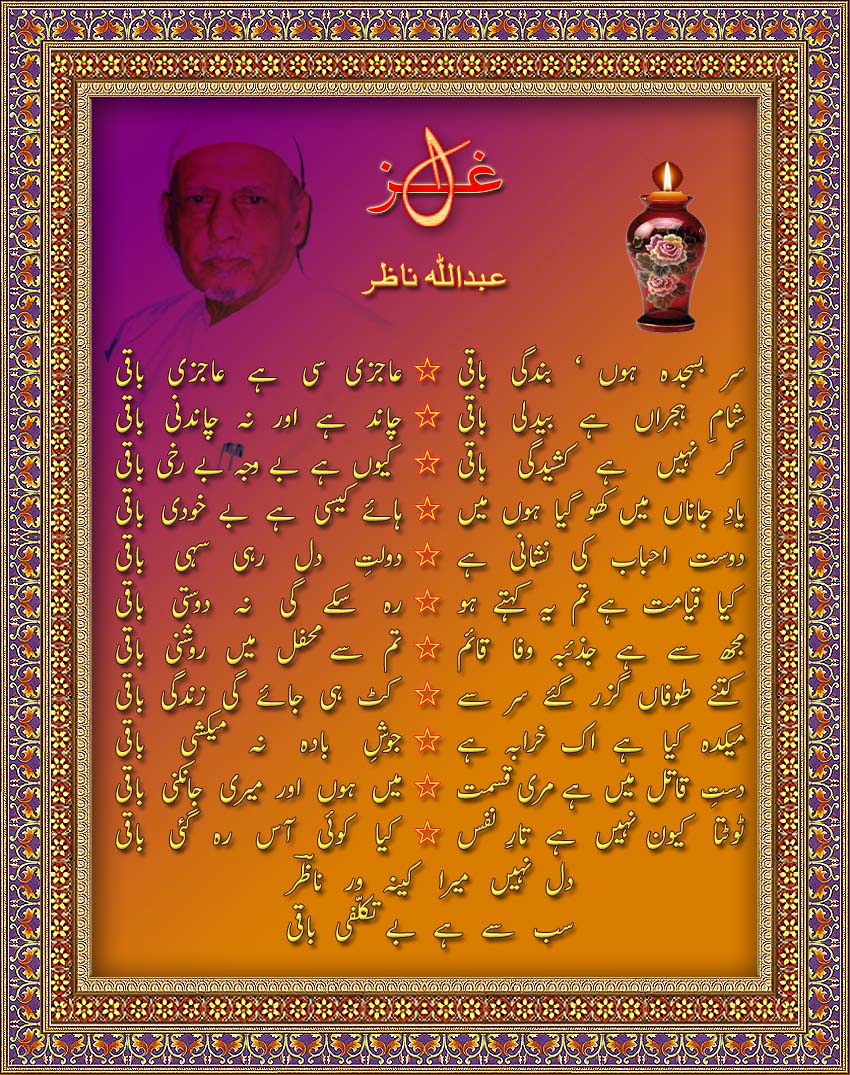 غزل
عبدالله ناظر
سر بسجدہ ہوں ‘ بندگی باقی ☆ عاجزی سی ہے عاجزی باقی
شامِ ہجراں ہے بیدلی باقی ☆ چاند ہے اور نہ چاندنی باقی
گر نہیں ہے کشیدگی باقی ☆ کیوں ہے بے وجہ بے رخی باقی
یادِ جاناں میں کھو گیا ہوں میں ☆ ہائے کیسی ہے بے خودی باقی
دوست احباب کی نشانی ہے ☆ دولتِ دل رہی سہی باقی
کیا قیامت ہے تم یہ کہتے ہو ☆ رہ سکے گی نہ دوستی باقی
مجھ سے ہے جذبۂ وفا قائم ☆ تم سے محفل میں روشنی باقی
کتنے طوفاں گزر گئے سر سے ☆ کٹ ہی جائے گی زندگی باقی
میکدہ کیا ہے اک خرابہ ہے ☆ جوشِ بادہ نہ میکشی باقی
دستِ قاتل میں ہے مری قسمت ☆ میں ہوں اور میری جانکنی باقی
ٹوٹتا کیون نہیں ہے تارِ نفس ☆ کیا کوئی آس رہ گئی باقی
دل نہیں میرا کینہ ور ناظرؔ
سب سے ہے بے تکلّفی باقی